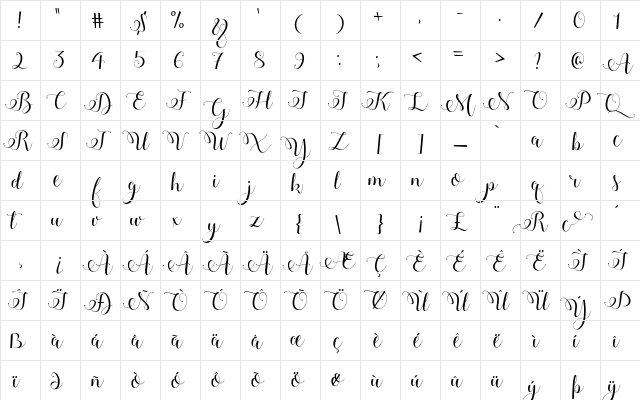 ! " # $ % & ' ( ) + , - . / 0 1
2 3 4 5 6 7 8 9 : ; < = > ? @ A
B C D E F G H I J K L M N O P Q
R S T U V W X Y Z [ ] _ ` a b c
d e f g h i j k l m n o p q r s
t u v w x y z { \ } ¡ £ ¨ R ´
¸ i À Á Â Ã Ä Å Æ Ç È É Ê Ë Ì Í
Î Ï Ð Ñ Ò Ó Ô Õ Ö Ø Ù Ú Û Ü Ý Þ
ß à á â ã ä å æ ç è é ê ë ì í î
ï ð ñ ò ó ô õ ö ø ù ú û ü ý þ ÿ